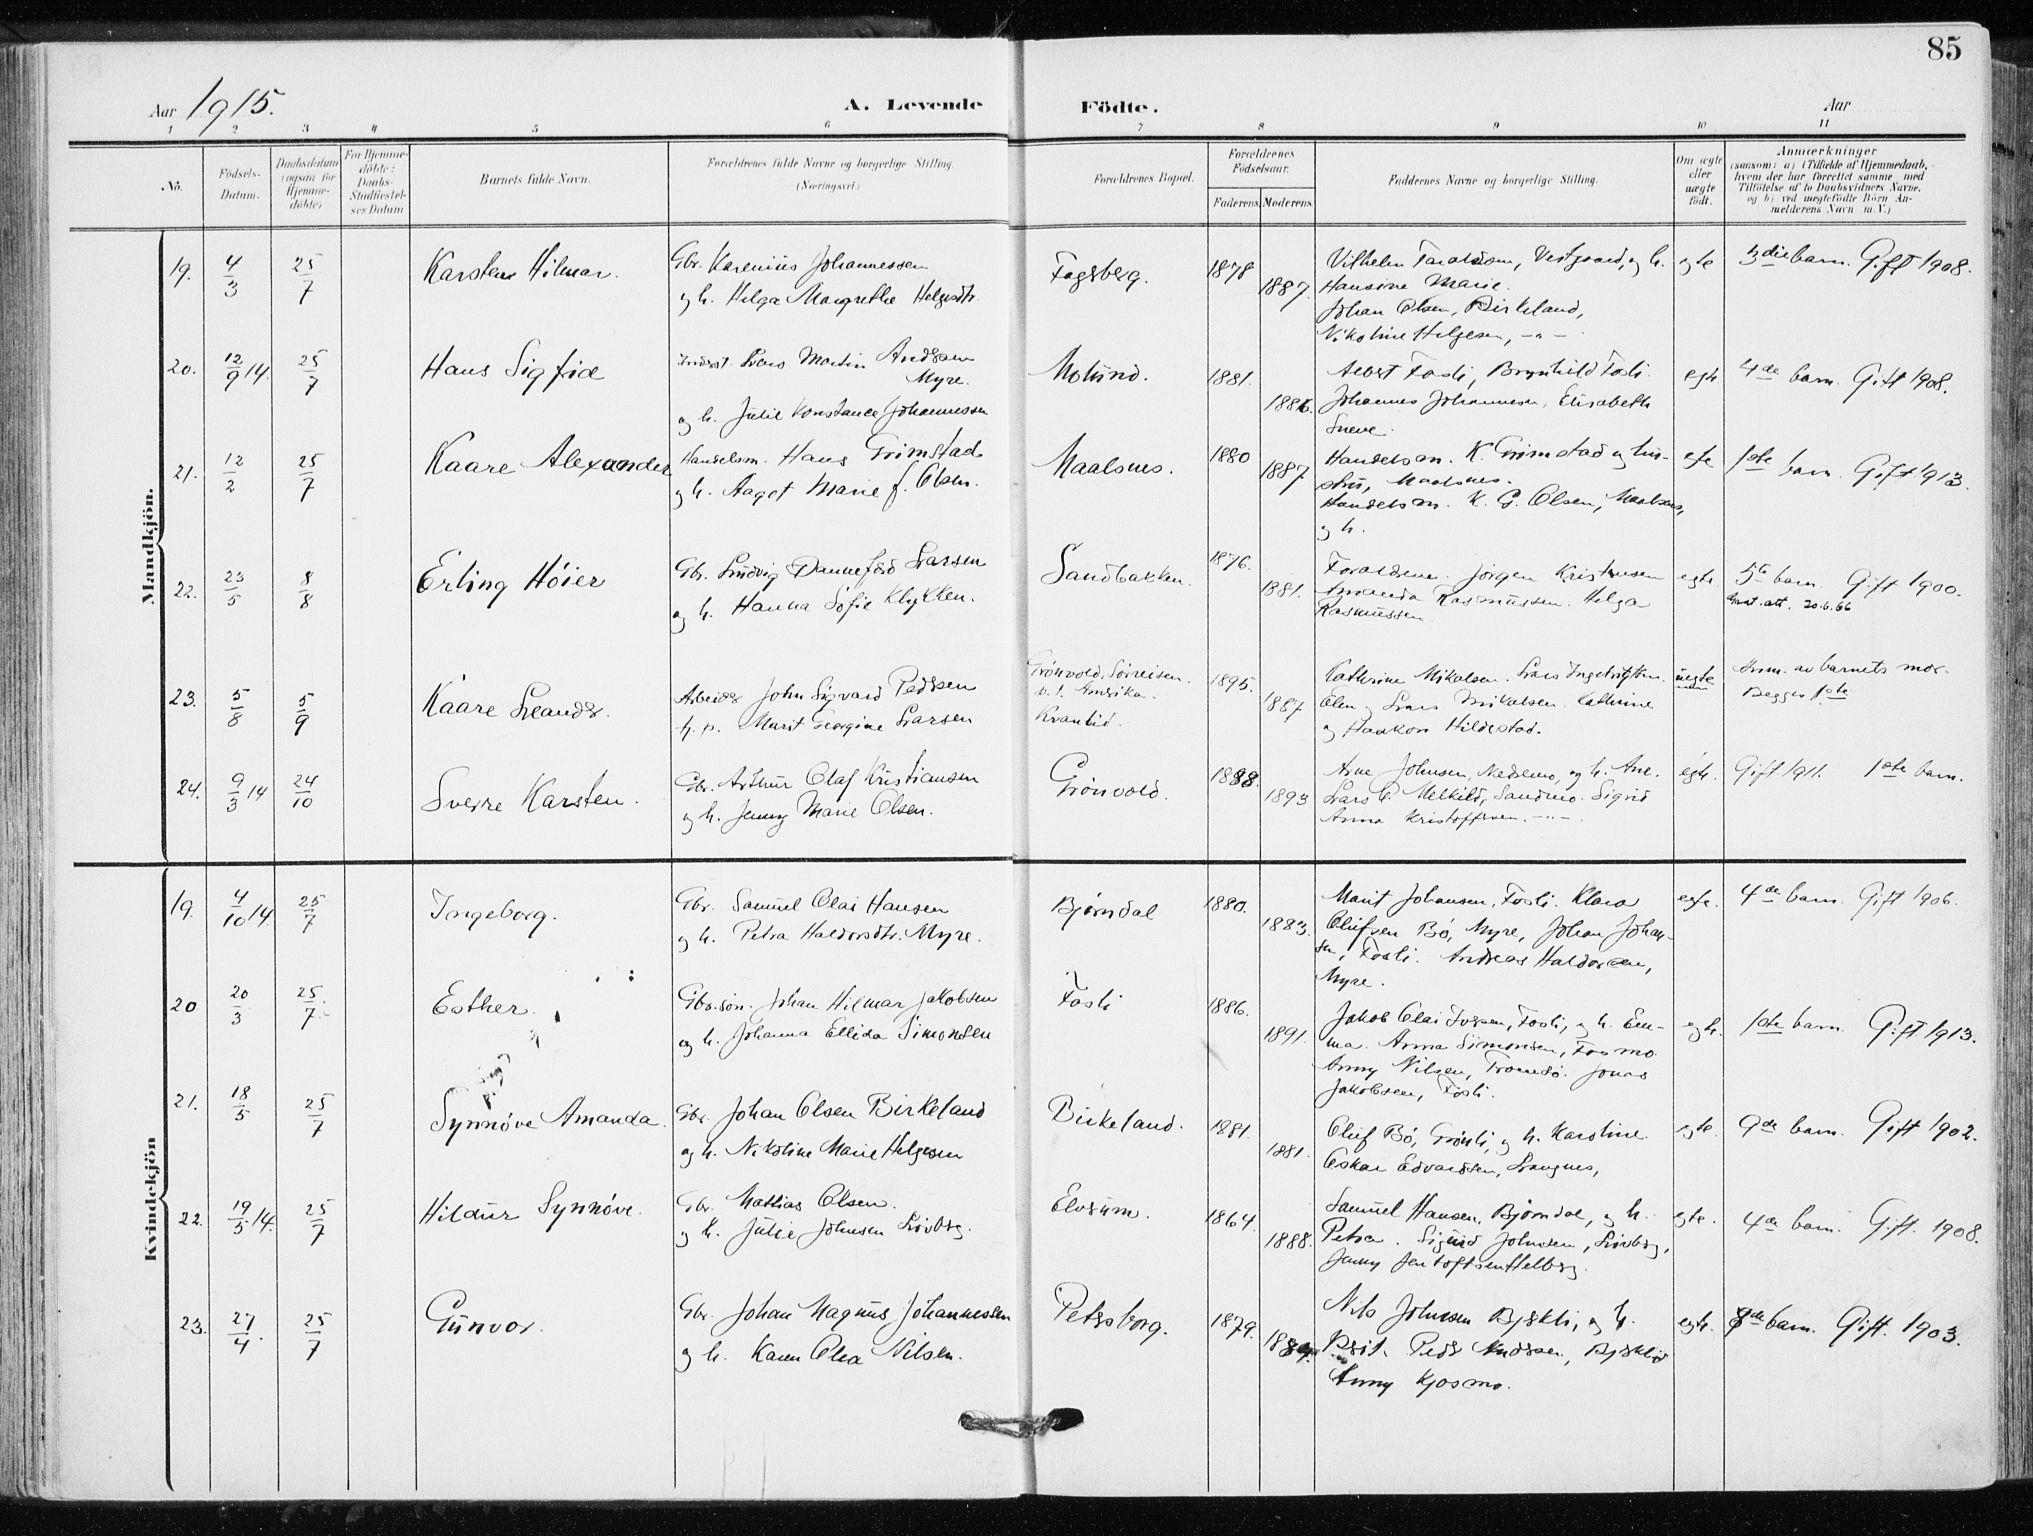 85
Aar 1915. A. Levende Födte. Aar
1 2 3 4 5 6 7 8 9 10 11
No. Födsels-Datum. Daabsdatum (ogsaa for Hjemme-döbte) For Hjemme-döbte: Daabs-Stadfæstel-ses Datum Barnets fulde Navn. Forældrenes fulde Navne og borgerlige Stilling. (Næringsvei.) Forældrenes Bopæl. Forældrenes Födselsaar. Faderens Moderens. Faddernes Navne og borgerlige Stilling. Om ægte eller uægte födt. Anmærkninger (saasom: a) i Tilfælde af Hjemmedaab, hvem der har forrettet samme med Tilföielse af to Daabsvidners Navne, og b) ved uægtefödte Börn An-melderens Navn m. V.)
Mandkjön.
19. 4/3 25/7 Karsten Hilmar. Gbr. Karenius Johannessen Fagsberg. 1878 Vilhelm Taraldsen, Vestgaard, og h. egte 3die barn. Gift 1908.
og h. Helga Margrethe Helgesdtr. 1887. Hansine Marie.
Johan Olsen, Birkeland,
Nikoline Helgesen, -"-
20. 12/9 14. 25/7 Hans Sigfrid Inderst. Lars Martin Andersen Molund. 1881. Albert Fosli, Brynhild Fosli. egte 4de barn. Gift 1908.
Myre.
og h. Julie Konstance Johannessen 1886. Johannes Johannesen, Elisabeth
Sneve.
21. 12/2 25/7 Kaare Alexander Handelsm. Hans Grimstad Maalsnes. 1880 Handelsm. K. Grimstad og hus- egte 1ste barn. Gift 1913.
og h. Aagot Marie f. Olsen. 1887 stru, Maalsnes.
Handelsm. K. G. Olsen, Maalsnes,
og h.
22. 23/5 8/8 Erling Höier Gbr. Ludvig Danneford Larsen Sandbakken. 1876. Forældrene. Jörgen Kristensen egte. 5te barn. Gift 1900.
og h. Hanna Sofie Klykken. 1881. Amanda Rasmussen. Helga att. 20.6.66
Rasmussen
23. 5/8 5/9 Kaare Leander. Arbeider John Sigvard Pedersen Grönvold, Sörreisen. 1895. Kathrine Mikalsen. Lars Ingebrigtsen. uegte Anm. av barnets mor.
p. t. Amerika.
h. p. Marit Georgine Larsen Kvantid. 1887 Elen og Lars Mikalsen. Kathrine Begges 1ste
og Haakon Hildestad.
24. 9/3 14 24/10 Sverre Karsten. Gbr. Arthur Olaf Kristiansen Grönvold. 1888. Arne Johnsen, Nedremo, og h. Ane. egte. Gift 1911. 1ste barn.
og h. Jenny Marie Olsen. 1893 Lars O. Melkild, Sandmo. Sigrid
Anna Kristoffersen. -"-
Kvindekjön
19. 4/10 14. 25/7 Ingeborg. Gbr. Samuel Olai Hansen Bjørndal 1880. Marit Johansen, Fosli. Klara egte. 4de barn. Gift 1906.
og h. Petra Haldorsdtr. Myre. 1883. Olufsen Bö, Myre, Johan Johan-
sen, Fosli. Andreas Haldorsen,
Myre.
20 20/3 25/7 Esther. Gbr.sön. Johan Hilmar Jakobsen Fosli 1886. Jakob Olai Iversen, Fosli, og h. Em- egte. 1ste barn. Gift 1913.
og h. Johanna Ellida Simonsen 1891. ma. Anna Simonsen, Fosmo.
Anny Nilsen, Tromsö. Jonas
Jakobsen, Fosli.
21. 18/5 25/7 Synnöve Amanda. Gbr. Johan Olsen Birkeland Birkeland. 1881. Oluf Bö, Grönli, og h. Karoline. egte. 9de barn. Gift 1902.
og h. Nikoline Marie Helgesen 1881. Oskar Edvardsen, Langnes,
22. 19/5 14. 25/7 Hildur Synnöve. Gbr. Mathias Olsen. Elverum. 1864. Samuel Hansen, Bjørndal, og h. egte. 4de barn. Gift 1908.
og h. Julie Johnsen Lövberg. 1888. Petra. Sigurd Johnsen, Lövberg,
Jenny Jentoftsen Helberg.
23. 27/4. 25/7 Gunvor. Gbr. Johan Magnus Johannessen Petersborg. 1879. Nils Johnsen Bjerkli, og h. egte. 8de barn. Gift. 1903.
og h. Karen Olea Nilsen. 1884. Berit. Peder Andersen, Bjerklid
Anny Kjosmo.